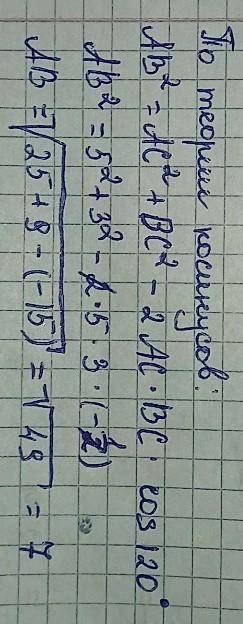 По теореме косинусов:
AB² = AC² + BC² - 2AC·BC·cos120°
AB² = 5² + 3² - 2·5·3·(-1/2)
AB = √25+9-(-15) = √49 = 7